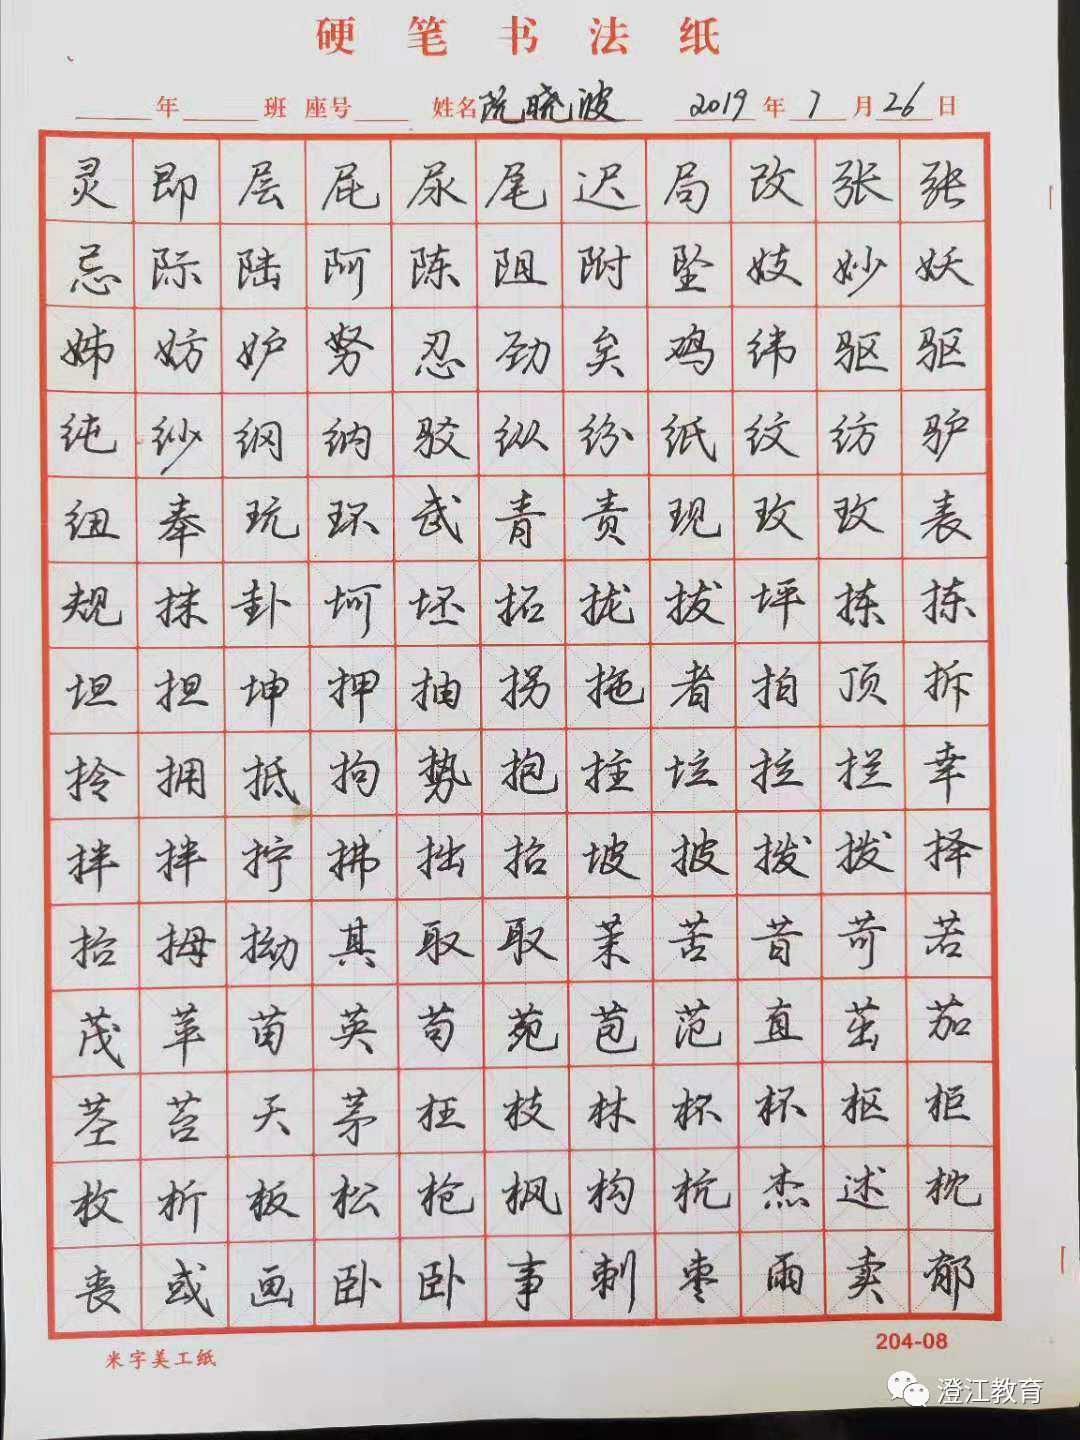 硬笔书法纸
年 班 座号 姓名 阮晓波 2019年7月26日
灵即层屁尿尾迟局改张张
忌际陆阿陈阻附坠妓妙妖
姊妨妒努忍劲矣鸡纬驱驱
纯纱纲纳驳纵纷纸纹纺驴
纽奉玩环武青责现玫玫表
规抹卦坷坯拓拢拔坪拣拣
坦担坤押抽拐拖者拍顶拆
拎拥抵拘势抱拄垃拉拦幸
拌拌拧拂拙招坡披拨拨择
抬拇拗其取取茉苦昔苛若
茂苹苗英苟苑苞范直茁茄
茎苔天茅枉枝林杯杯枢柜
枚析板松枪枫构杭杰述枕
丧或画卧卧事刺枣雨卖郁
米字美工纸
204-08
澄江教育